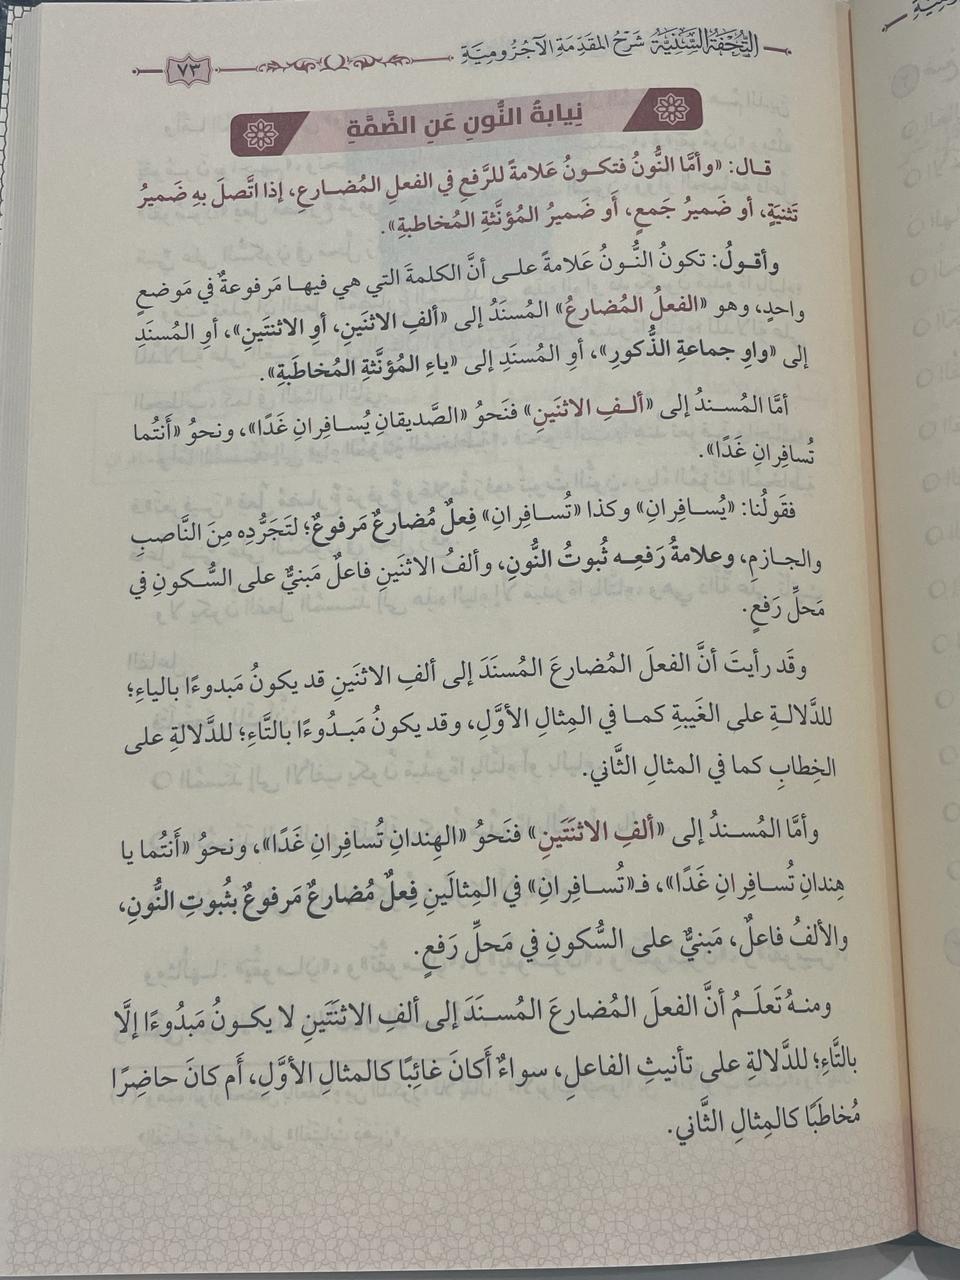 التُّحْفَةُ السَّنِيَّةُ شَرْحُ المُقَدِّمَةِ الآجُرُّومِيَّةِ
٧٣
نِيابةُ النُّونِ عَنِ الضَّمَّةِ
قال: «وأمَّا النُّونُ فتكونُ عَلامةً للرَّفعِ في الفعلِ المُضارعِ، إذا اتَّصلَ بهِ ضَميرُ
تَثنيَةٍ، أو ضَميرُ جَمعٍ، أو ضَميرُ المُؤنَّثةِ المُخاطبةِ».
وأقولُ: تكونُ النُّونُ عَلامةً على أنَّ الكلمةَ التي هي فيها مَرفوعةٌ في مَوضعٍ
واحدٍ، وهو «الفعلُ المُضارعُ» المُسنَدُ إلى «ألفِ الاثنَينِ، أوِ الاثنتَينِ»، أوِ المُسنَدِ
إلى «واوِ جماعةِ الذُّكورِ»، أوِ المُسنَدِ إلى «ياءِ المُؤنَّثةِ المُخاطَبةِ».
أمَّا المُسندُ إلى «ألفِ الاثنَينِ» فنَحوُ «الصَّديقانِ يُسافِرانِ غَدًا»، ونحوُ «أَنتُما
تُسافِرانِ غَدًا».
فقَولُنا: «يُسافِرانِ» وكذا «تُسافِرانِ» فِعلٌ مُضارعٌ مَرفوعٌ؛ لتَجَرُّدِه مِنَ النَّاصبِ
والجازمِ، وعلامةُ رَفعِه ثُبوتُ النُّونِ، وألفُ الاثنَينِ فاعلٌ مَبنيٌّ على السُّكونِ في
مَحلِّ رَفعٍ.
وقَد رأيتَ أنَّ الفعلَ المُضارعَ المُسنَدَ إلى ألفِ الاثنَينِ قد يكونُ مَبدوءًا بالياءِ؛
للدَّلالةِ على الغَيبةِ كما في المِثالِ الأوَّلِ، وقد يكونُ مَبدُوءًا بالتَّاءِ؛ للدَّلالةِ على
الخِطابِ كما في المثالِ الثَّاني.
وأمَّا المُسندُ إلى «ألفِ الاثنَتَينِ» فنَحوُ «الهِندانِ تُسافِرانِ غَدًا»، ونحوُ «أَنتُما يا
هِندانِ تُسافِرانِ غَدًا»، فـ«تُسافِرانِ» في المِثالَينِ فِعلٌ مُضارعٌ مَرفوعٌ بثُبوتِ النُّونِ،
والألفُ فاعلٌ، مَبنيٌّ على السُّكونِ في مَحلِّ رَفعٍ.
ومنهُ تَعلَمُ أنَّ الفعلَ المُضارعَ المُسنَدَ إلى ألفِ الاثنَتَينِ لا يكونُ مَبدُوءًا إلَّا
بالتَّاءِ؛ للدَّلالةِ على تأنيثِ الفاعلِ، سواءٌ أَكانَ غائِبًا كالمثالِ الأوَّلِ، أَم كانَ حاضِرًا
مُخاطَبًا كالمِثالِ الثَّاني.